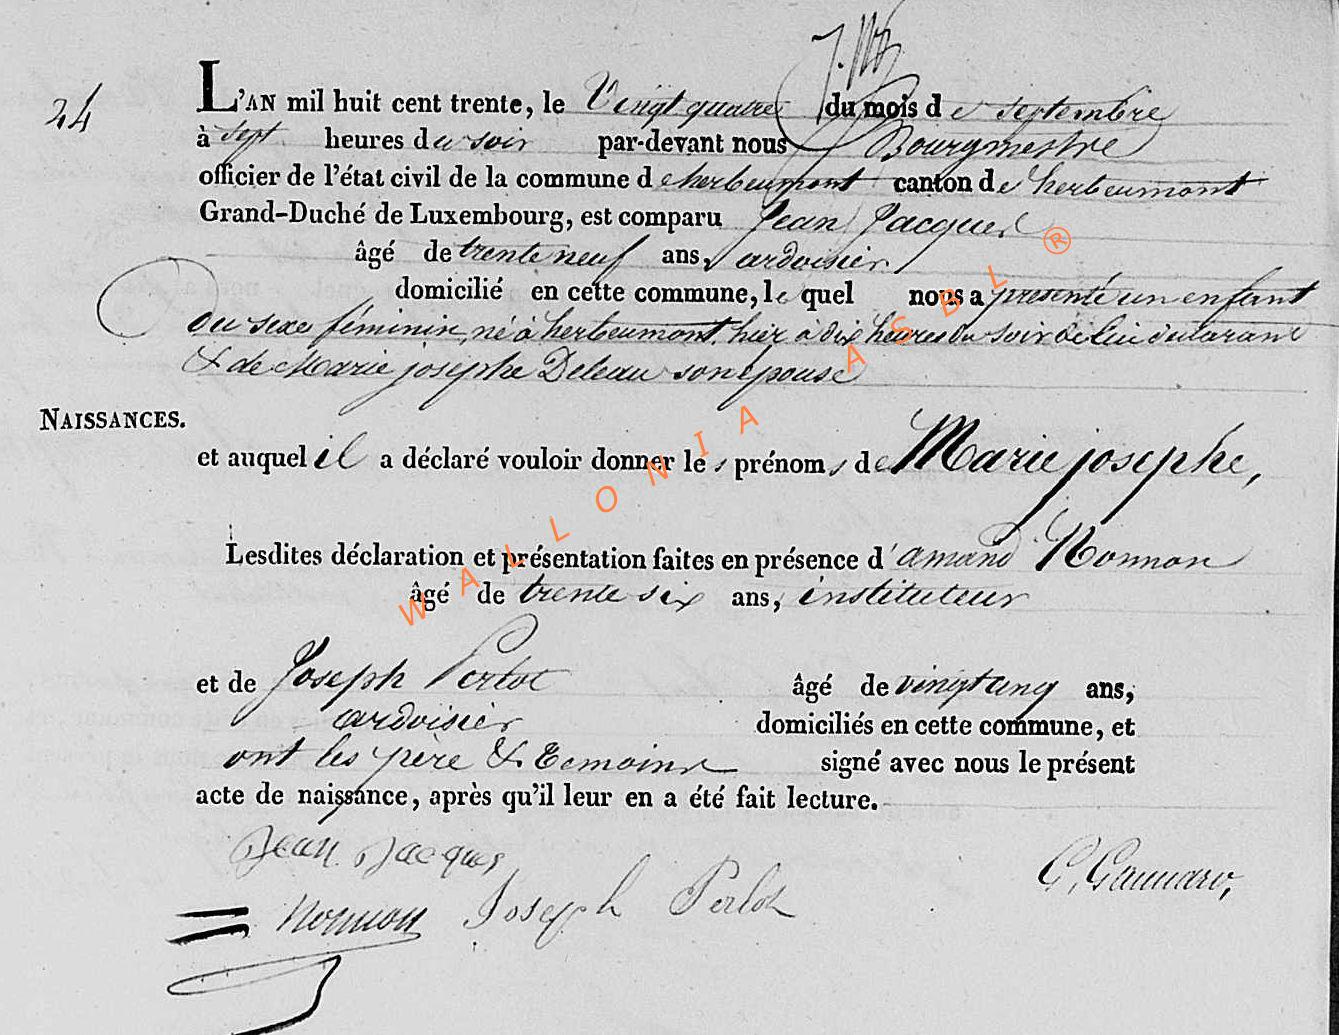 24
L'AN mil huit cent trente, le Vingt quatre du mois de septembre
à sept heures du soir par-devant nous Bourgmestre
officier de l'état civil de la commune d'herbeumont canton de herbeumont
Grand-Duché de Luxembourg, est comparu Jean Jacques
âgé de trente neuf ans, ardoisier
domicilié en cette commune, le quel nous a présenté un enfant
du sexe féminin, né à herbeumont, hier à dix heures du soir de lui déclarant
& de Marie josephe Deleau son épouse
NAISSANCES.
et auquel il a déclaré vouloir donner les prénoms de Marie josephe,
Lesdites déclaration et présentation faites en présence d'amand Nonnon
âgé de trente six ans, instituteur
et de Joseph Perlot âgé de vingt cinq ans,
ardoisier domiciliés en cette commune, et
ont les père & temoins signé avec nous le présent
acte de naissance, après qu'il leur en a été fait lecture.
Jean Jacques
Nonnon Joseph Perlot
WALLONIA ASBL ®